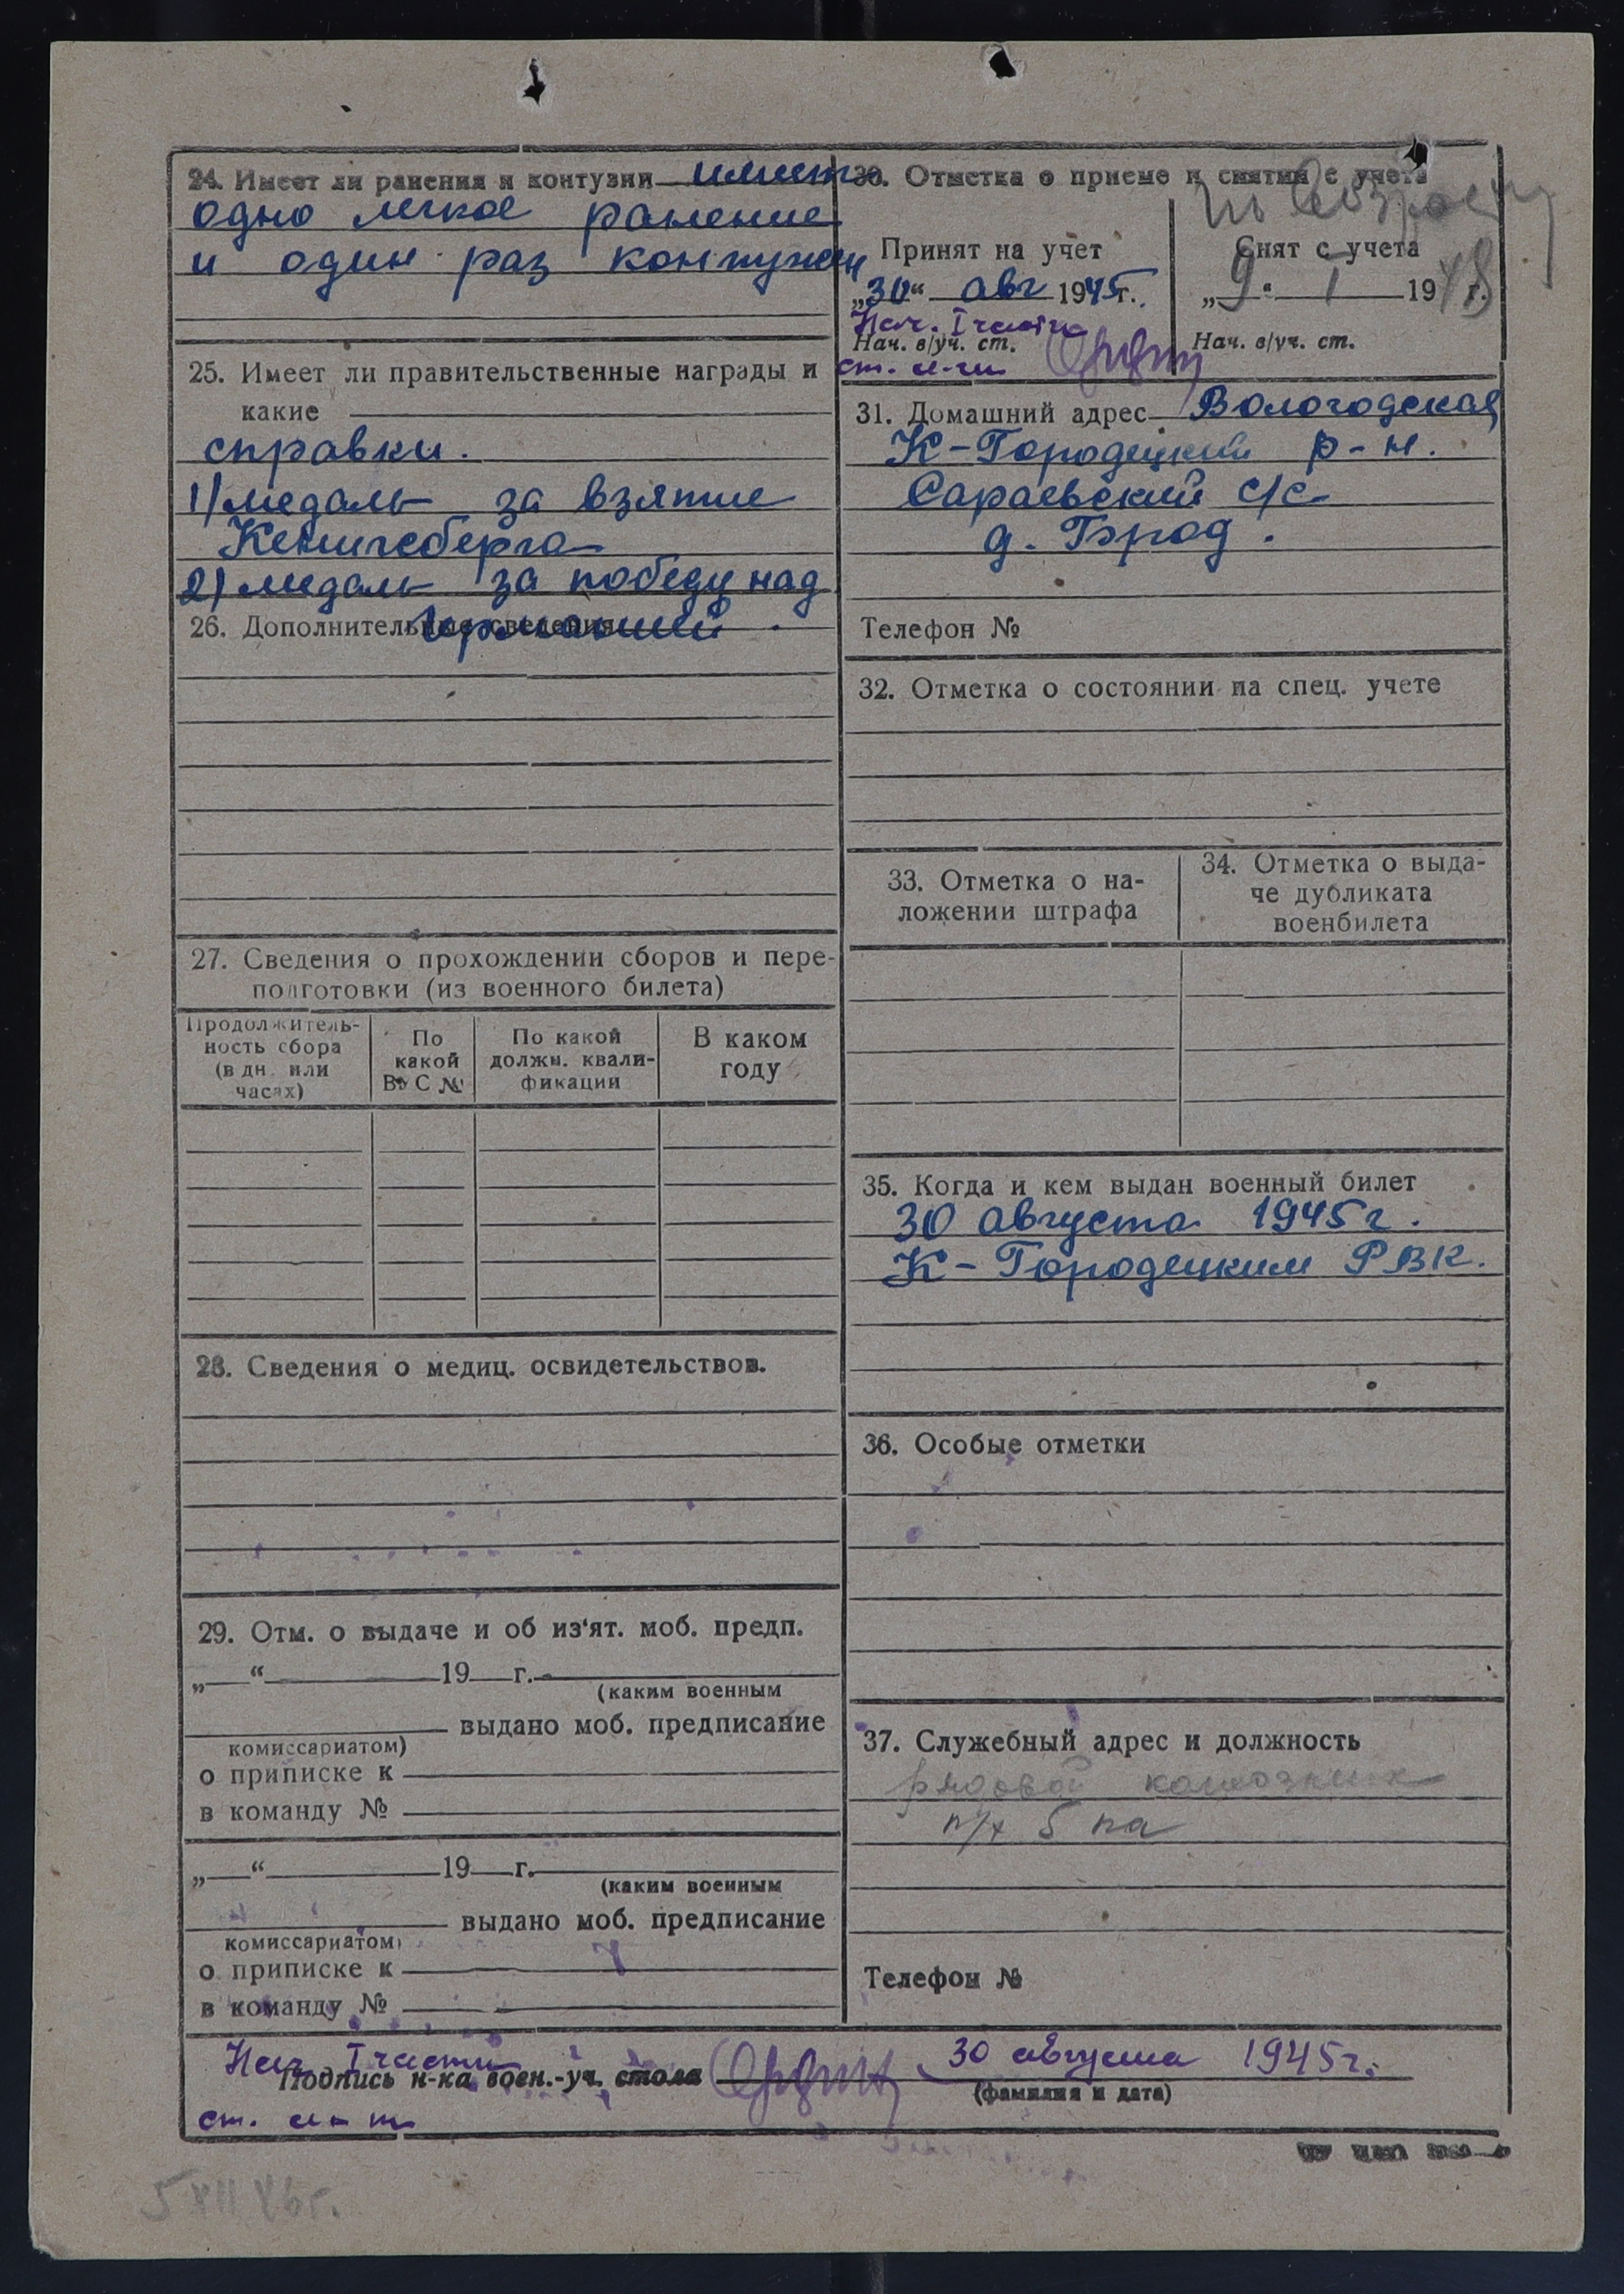 24. Имеет ли ранения и контузии имеет
одно легкое ранение
и один раз контужен
25. Имеет ли правительственные награды и
какие
справки.
1) медаль за взятие
Кенигсберга
2) медаль за победу над
Германией.
26. Дополнительные сведения
27. Сведения о прохождении сборов и пере-
подготовки (из военного билета)
Продолжитель-
ность сбора
(в дн. или
часах)
По
какой
ВУС №
По какой
должн. квали-
фикации
В каком
году
28. Сведения о медиц. освидетельствов.
29. Отм. о выдаче и об из'ят. моб. предп.
„ “ 19 г.
(каким военным
выдано моб. предписание
комиссариатом)
о приписке к
в команду №
„ “ 19 г.
(каким военным
выдано моб. предписание
комиссариатом)
о приписке к
в команду №
30. Отметка о приеме и снятии с учета
по возрасту
Принят на учет
„30“ авг 1945г.
Нач. I части
Нач. в/уч. ст.
ст. л-т
Снят с учета
„9. I 1948г.
Нач. в/уч. ст.
31. Домашний адрес Вологодская
К-Городецкий р-н.
Сараевский с/с
д. Город.
Телефон №
32. Отметка о состоянии на спец. учете
33. Отметка о на-
ложении штрафа
34. Отметка о выда-
че дубликата
военбилета
35. Когда и кем выдан военный билет
30 августа 1945г.
К-Городецким РВК.
36. Особые отметки
37. Служебный адрес и должность
рядовой колхозник
Телефон №
Нач. I части
Подпись н-ка воен.-уч. стола 30 августа 1945г.
(фамилия и дата)
ст. л-т